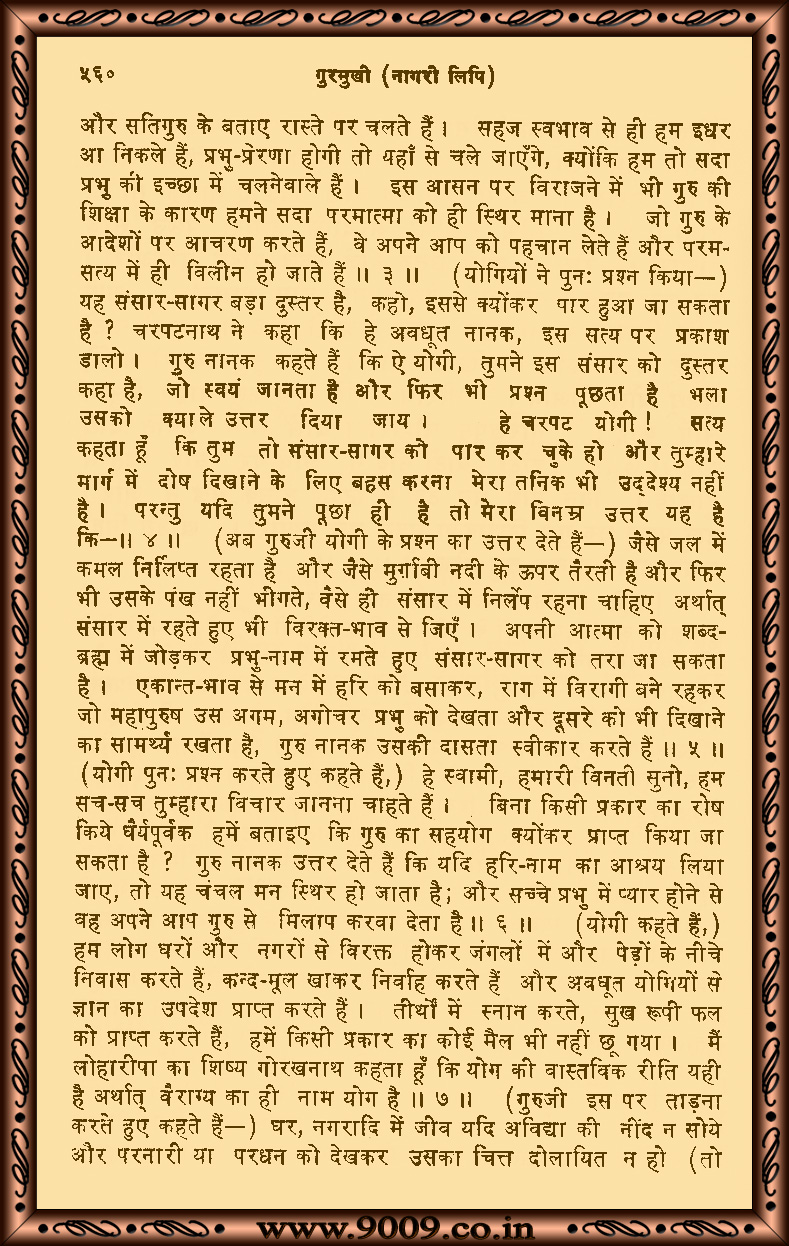 ५६० गुरमुखी (नागरी लिपि)
और सतिगुरु के बताए रास्ते पर चलते हैं । सहज स्वभाव से ही हम इधर
आ निकले हैं, प्रभु-प्रेरणा होगी तो यहाँ से चले जाएँगे, क्योंकि हम तो सदा
प्रभु की इच्छा में चलनेवाले हैं । इस आसन पर विराजने में भी गुरु की
शिक्षा के कारण हमने सदा परमात्मा को ही स्थिर माना है । जो गुरु के
आदेशों पर आचरण करते हैं, वे अपने आप को पहचान लेते हैं और परम-
सत्य में ही विलीन हो जाते हैं ॥ ३ ॥ (योगियों ने पुनः प्रश्न किया—)
यह संसार-सागर बड़ा दुस्तर है, कहो, इससे क्योंकर पार हुआ जा सकता
है ? चरपटनाथ ने कहा कि हे अवधूत नानक, इस सत्य पर प्रकाश
डालो । गुरु नानक कहते हैं कि ऐ योगी, तुमने इस संसार को दुस्तर
कहा है, जो स्वयं जानता है और फिर भी प्रश्न पूछता है भला
उसको क्याले उत्तर दिया जाय । हे चरपट योगी ! सत्य
कहता हूँ कि तुम तो संसार-सागर को पार कर चुके हो और तुम्हारे
मार्ग में दोष दिखाने के लिए बहस करना मेरा तनिक भी उद्देश्य नहीं
है । परन्तु यदि तुमने पूछा ही है तो मेरा विनम्र उत्तर यह है
कि—॥ ४ ॥ (अब गुरुजी योगी के प्रश्न का उत्तर देते हैं—) जैसे जल में
कमल निर्लिप्त रहता है और जैसे मुर्गाबी नदी के ऊपर तैरती है और फिर
भी उसके पंख नहीं भीगते, वैसे ही संसार में निर्लेप रहना चाहिए अर्थात्
संसार में रहते हुए भी विरक्त-भाव से जिएँ । अपनी आत्मा को शब्द-
ब्रह्म में जोड़कर प्रभु-नाम में रमते हुए संसार-सागर को तरा जा सकता
है । एकान्त-भाव से मन में हरि को बसाकर, राग में विरागी बने रहकर
जो महापुरुष उस अगम, अगोचर प्रभु को देखता और दूसरे को भी दिखाने
का सामर्थ्य रखता है, गुरु नानक उसकी दासता स्वीकार करते हैं ॥ ५ ॥
(योगी पुनः प्रश्न करते हुए कहते हैं,) हे स्वामी, हमारी विनती सुनो, हम
सच-सच तुम्हारा विचार जानना चाहते हैं । बिना किसी प्रकार का रोष
किये धैर्यपूर्वक हमें बताइए कि गुरु का सहयोग क्योंकर प्राप्त किया जा
सकता है ? गुरु नानक उत्तर देते हैं कि यदि हरि-नाम का आश्रय लिया
जाए, तो यह चंचल मन स्थिर हो जाता है; और सच्चे प्रभु में प्यार होने से
वह अपने आप गुरु से मिलाप करवा देता है ॥ ६ ॥ (योगी कहते हैं,)
हम लोग घरों और नगरों से विरक्त होकर जंगलों में और पेड़ों के नीचे
निवास करते हैं, कन्द-मूल खाकर निर्वाह करते हैं और अवधूत योगियों से
ज्ञान का उपदेश प्राप्त करते हैं । तीर्थों में स्नान करते, सुख रूपी फल
को प्राप्त करते हैं, हमें किसी प्रकार का कोई मैल भी नहीं छू गया । मैं
लोहारीपा का शिष्य गोरखनाथ कहता हूँ कि योग की वास्तविक रीति यही
है अर्थात् वैराग्य का ही नाम योग है ॥ ७ ॥ (गुरुजी इस पर ताड़ना
करते हुए कहते हैं—) घर, नगरादि में जीव यदि अविद्या की नींद न सोये
और परनारी या परधन को देखकर उसका चित्त दोलायित न हो (तो
www.9009.co.in